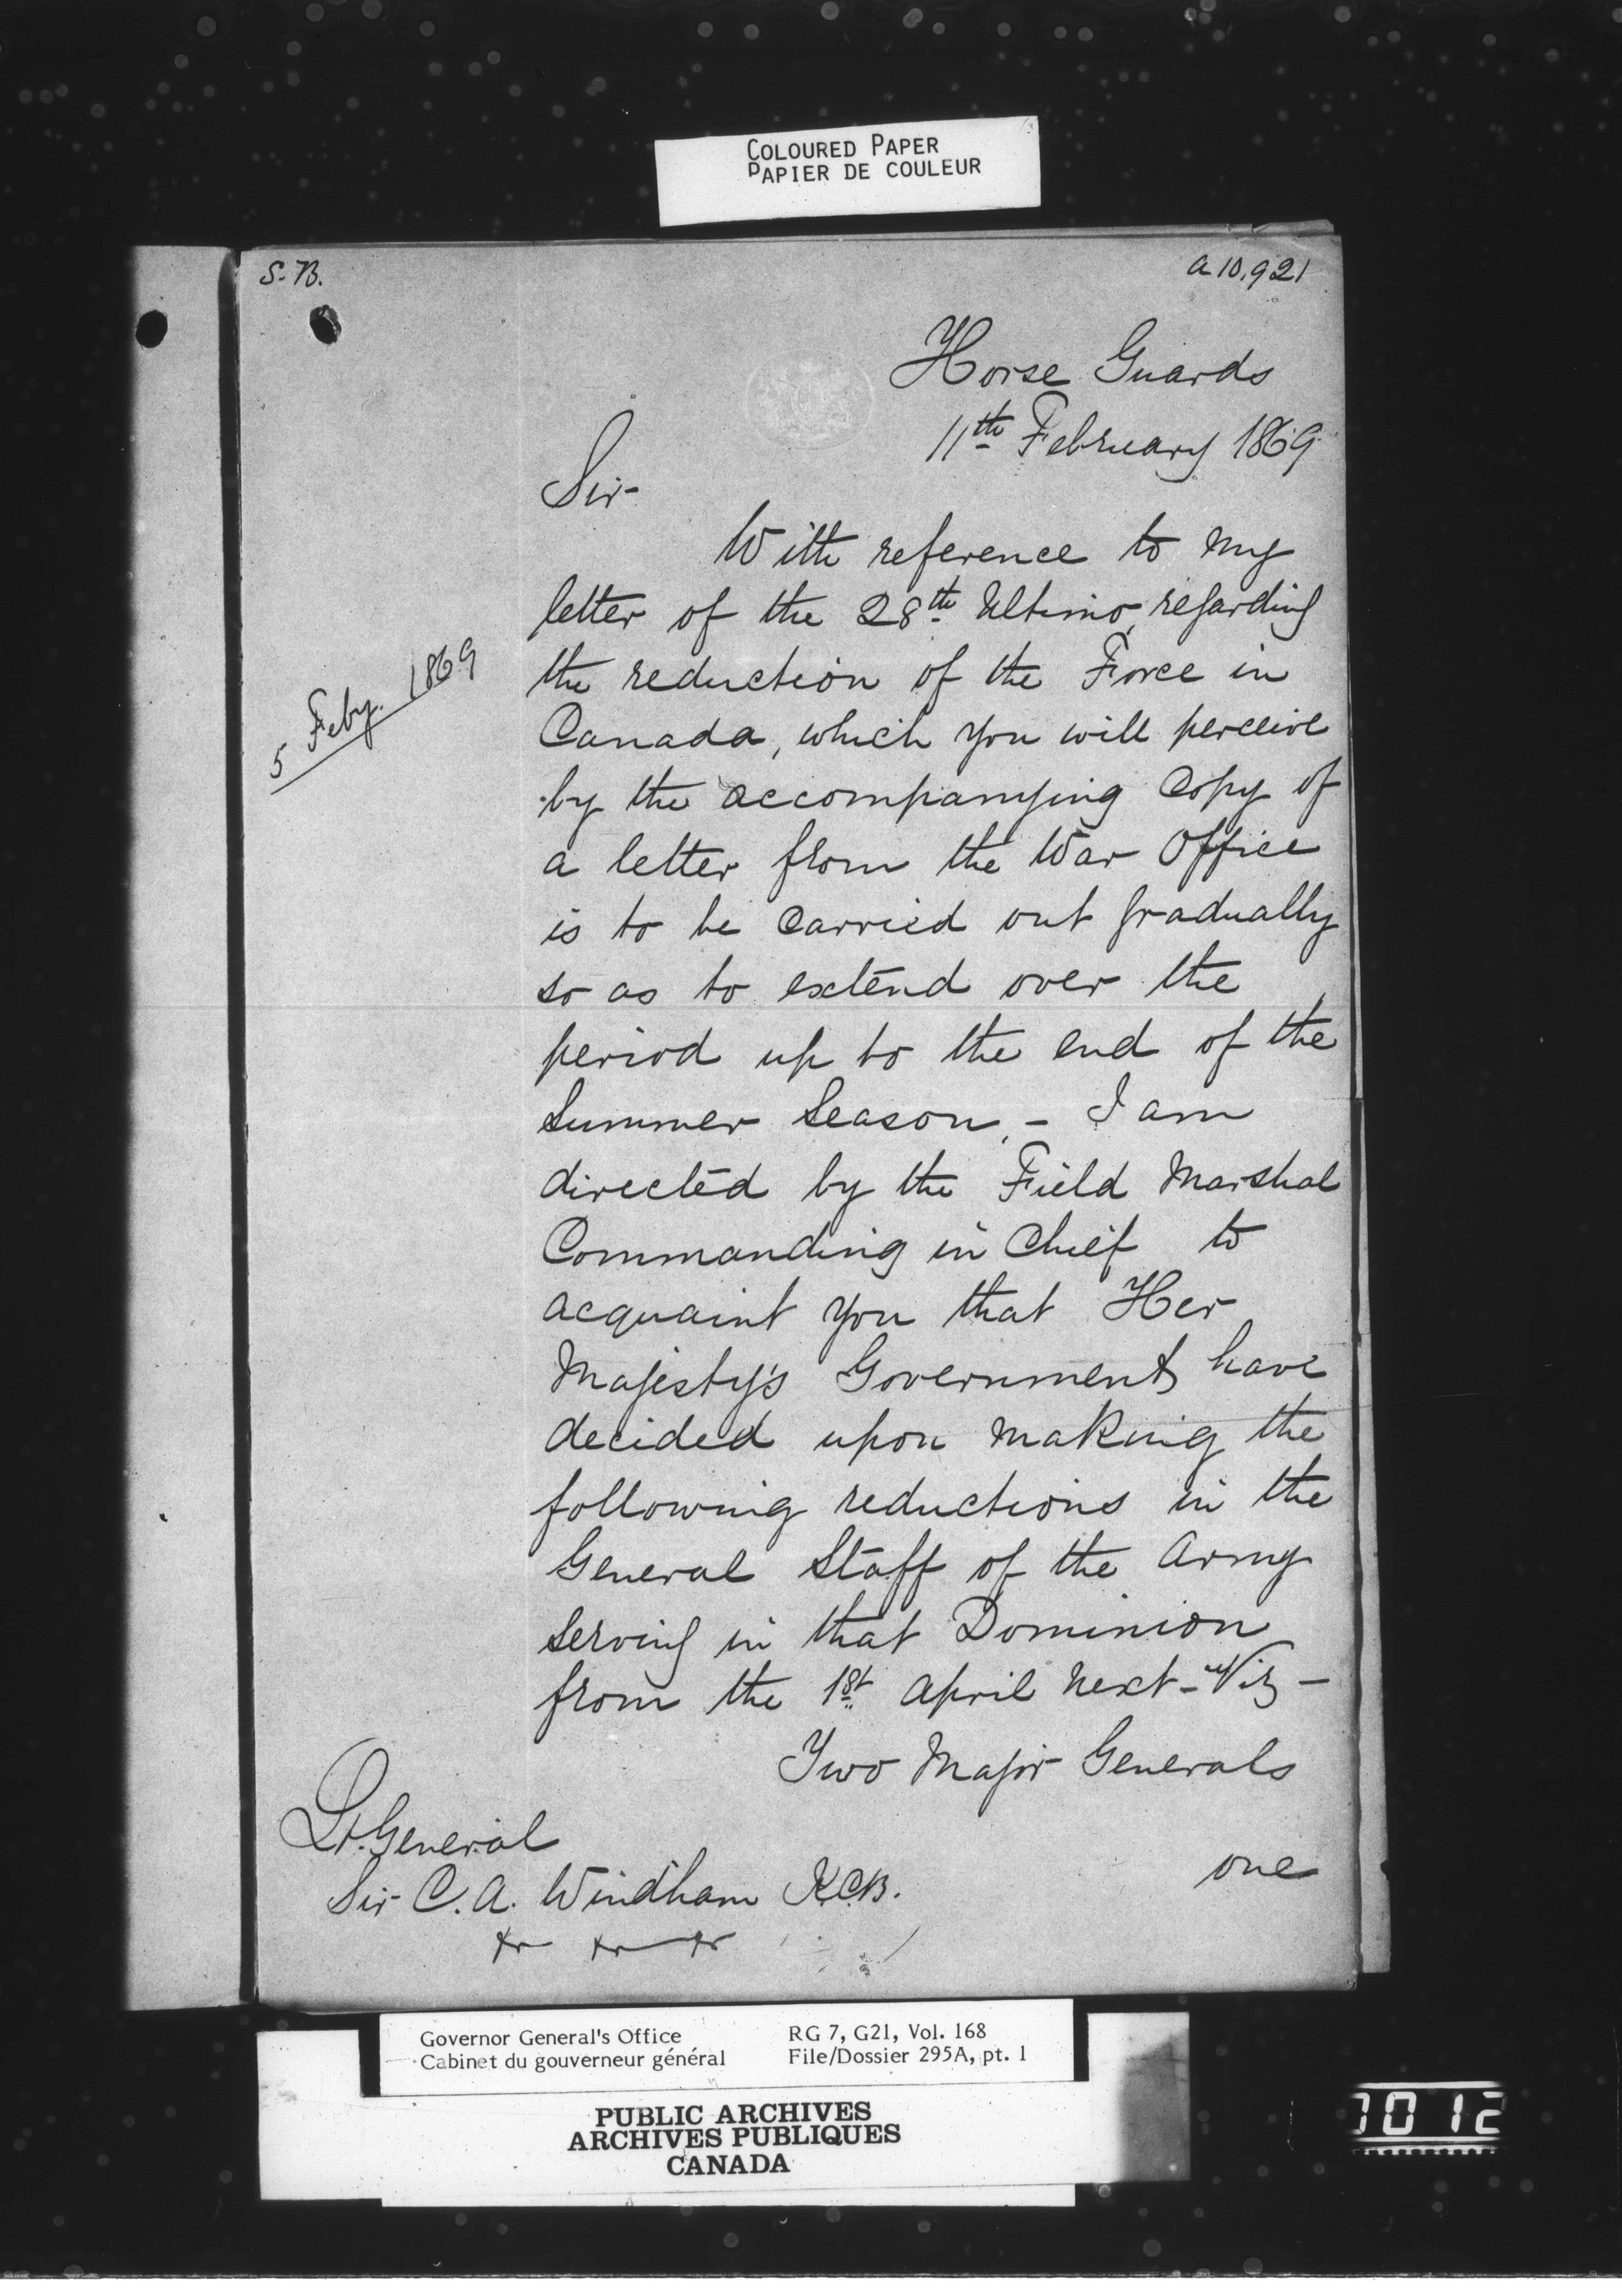 COLOURED PAPER
PAPIER DE COULEUR
S.B.
a 10,921
Horse Guards
11th February 1869
Sir
With reference to my
letter of the 28th Ultimo, regarding
the reduction of the Force in
5 Feby. 1869
Canada, which you will perceive
by the accompanying Copy of
a letter from the War Office
is to be Carried out gradually
so as to extend over the
period up to the end of the
Summer Season, - I am
directed by the Field Marshal
Commanding in Chief to
acquaint you that Her
Majesty's Government have
decided upon making the
following reductions in the
General Staff of the Army
Serving in that Dominion
from the 1st April next - Viz -
Two Major Generals
one
Lt. General
Sir C. A. Windham K.C.B.
Governor General's Office
Cabinet du gouverneur général
RG 7, G21, Vol. 168
File/Dossier 295A, pt. 1
PUBLIC ARCHIVES
ARCHIVES PUBLIQUES
CANADA